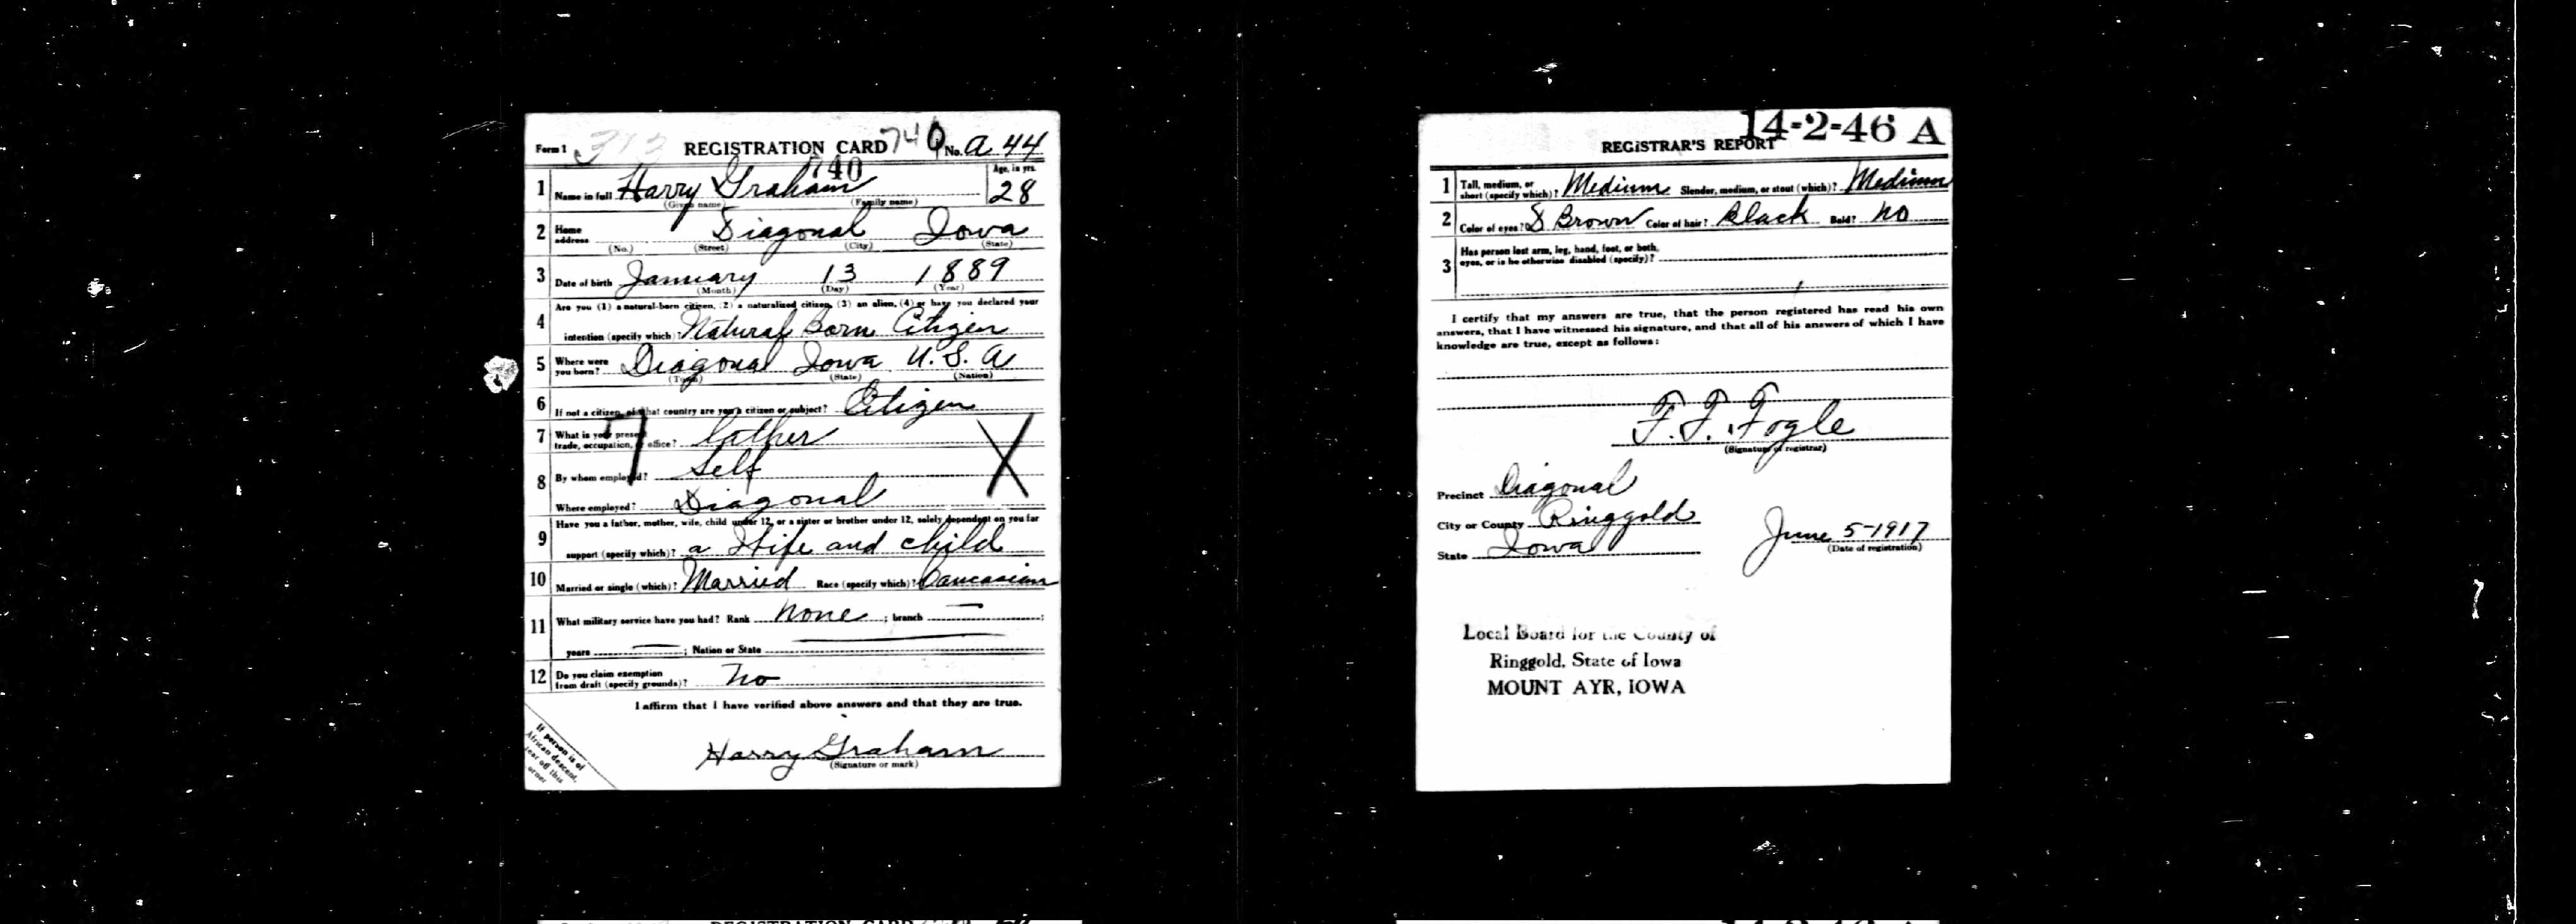 Form 1 313 REGISTRATION CARD 740 No. A 44
740
1 Name in full Harry Graham Age, in yrs. 28
(Given name) (Family name)
2 Home address Diagonal Iowa
(No.) (Street) (City) (State)
3 Date of birth January 13 1889
(Month) (Day) (Year)
4 Are you (1) a natural-born citizen, (2) a naturalized citizen, (3) an alien, (4) or have you declared your
intention (specify which)? Natural Born Citizen
5 Where were you born? Diagonal Iowa U. S. A
(Town) (State) (Nation)
6 If not a citizen, of what country are you a citizen or subject? Citizen
7 What is your present trade, occupation, or office? Lather
8 By whom employed? Self
Where employed? Diagonal
9 Have you a father, mother, wife, child under 12, or a sister or brother under 12, solely dependent on you for
support (specify which)? a Wife and child
10 Married or single (which)? Married Race (specify which)? Caucasian
11 What military service have you had? Rank None ; branch — ;
years — ; Nation or State
12 Do you claim exemption from draft (specify grounds)? No
I affirm that I have verified above answers and that they are true.
Harry Graham
(Signature or mark)
If person is of
African descent,
tear off this
corner
14-2-46 A
REGISTRAR'S REPORT
1 Tall, medium, or short (specify which)? Medium Slender, medium, or stout (which)? Medium
2 Color of eyes? Brown Color of hair? Black Bald? No
3 Has person lost arm, leg, hand, foot, or both
eyes, or is he otherwise disabled (specify)?
I certify that my answers are true, that the person registered has read his own
answers, that I have witnessed his signature, and that all of his answers of which I have
knowledge are true, except as follows:
F. F. Fogle
(Signature of registrar)
Precinct Diagonal
City or County Ringgold
State Iowa
June 5-1917
(Date of registration)
Local Board for the County of
Ringgold, State of Iowa
MOUNT AYR, IOWA